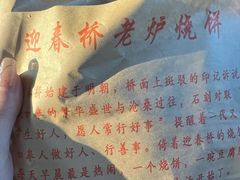 迎春桥老炉烧饼
始建于明朝,桥面上斑驳的印记诉说
的繁华盛世与沧桑过往。石刻对联
生好人,愿人常行好事"提醒着一代又
人做好人、行善事。倚着迎春桥的烧
天早晨最是热闹,一个烧饼,一碗豆腐